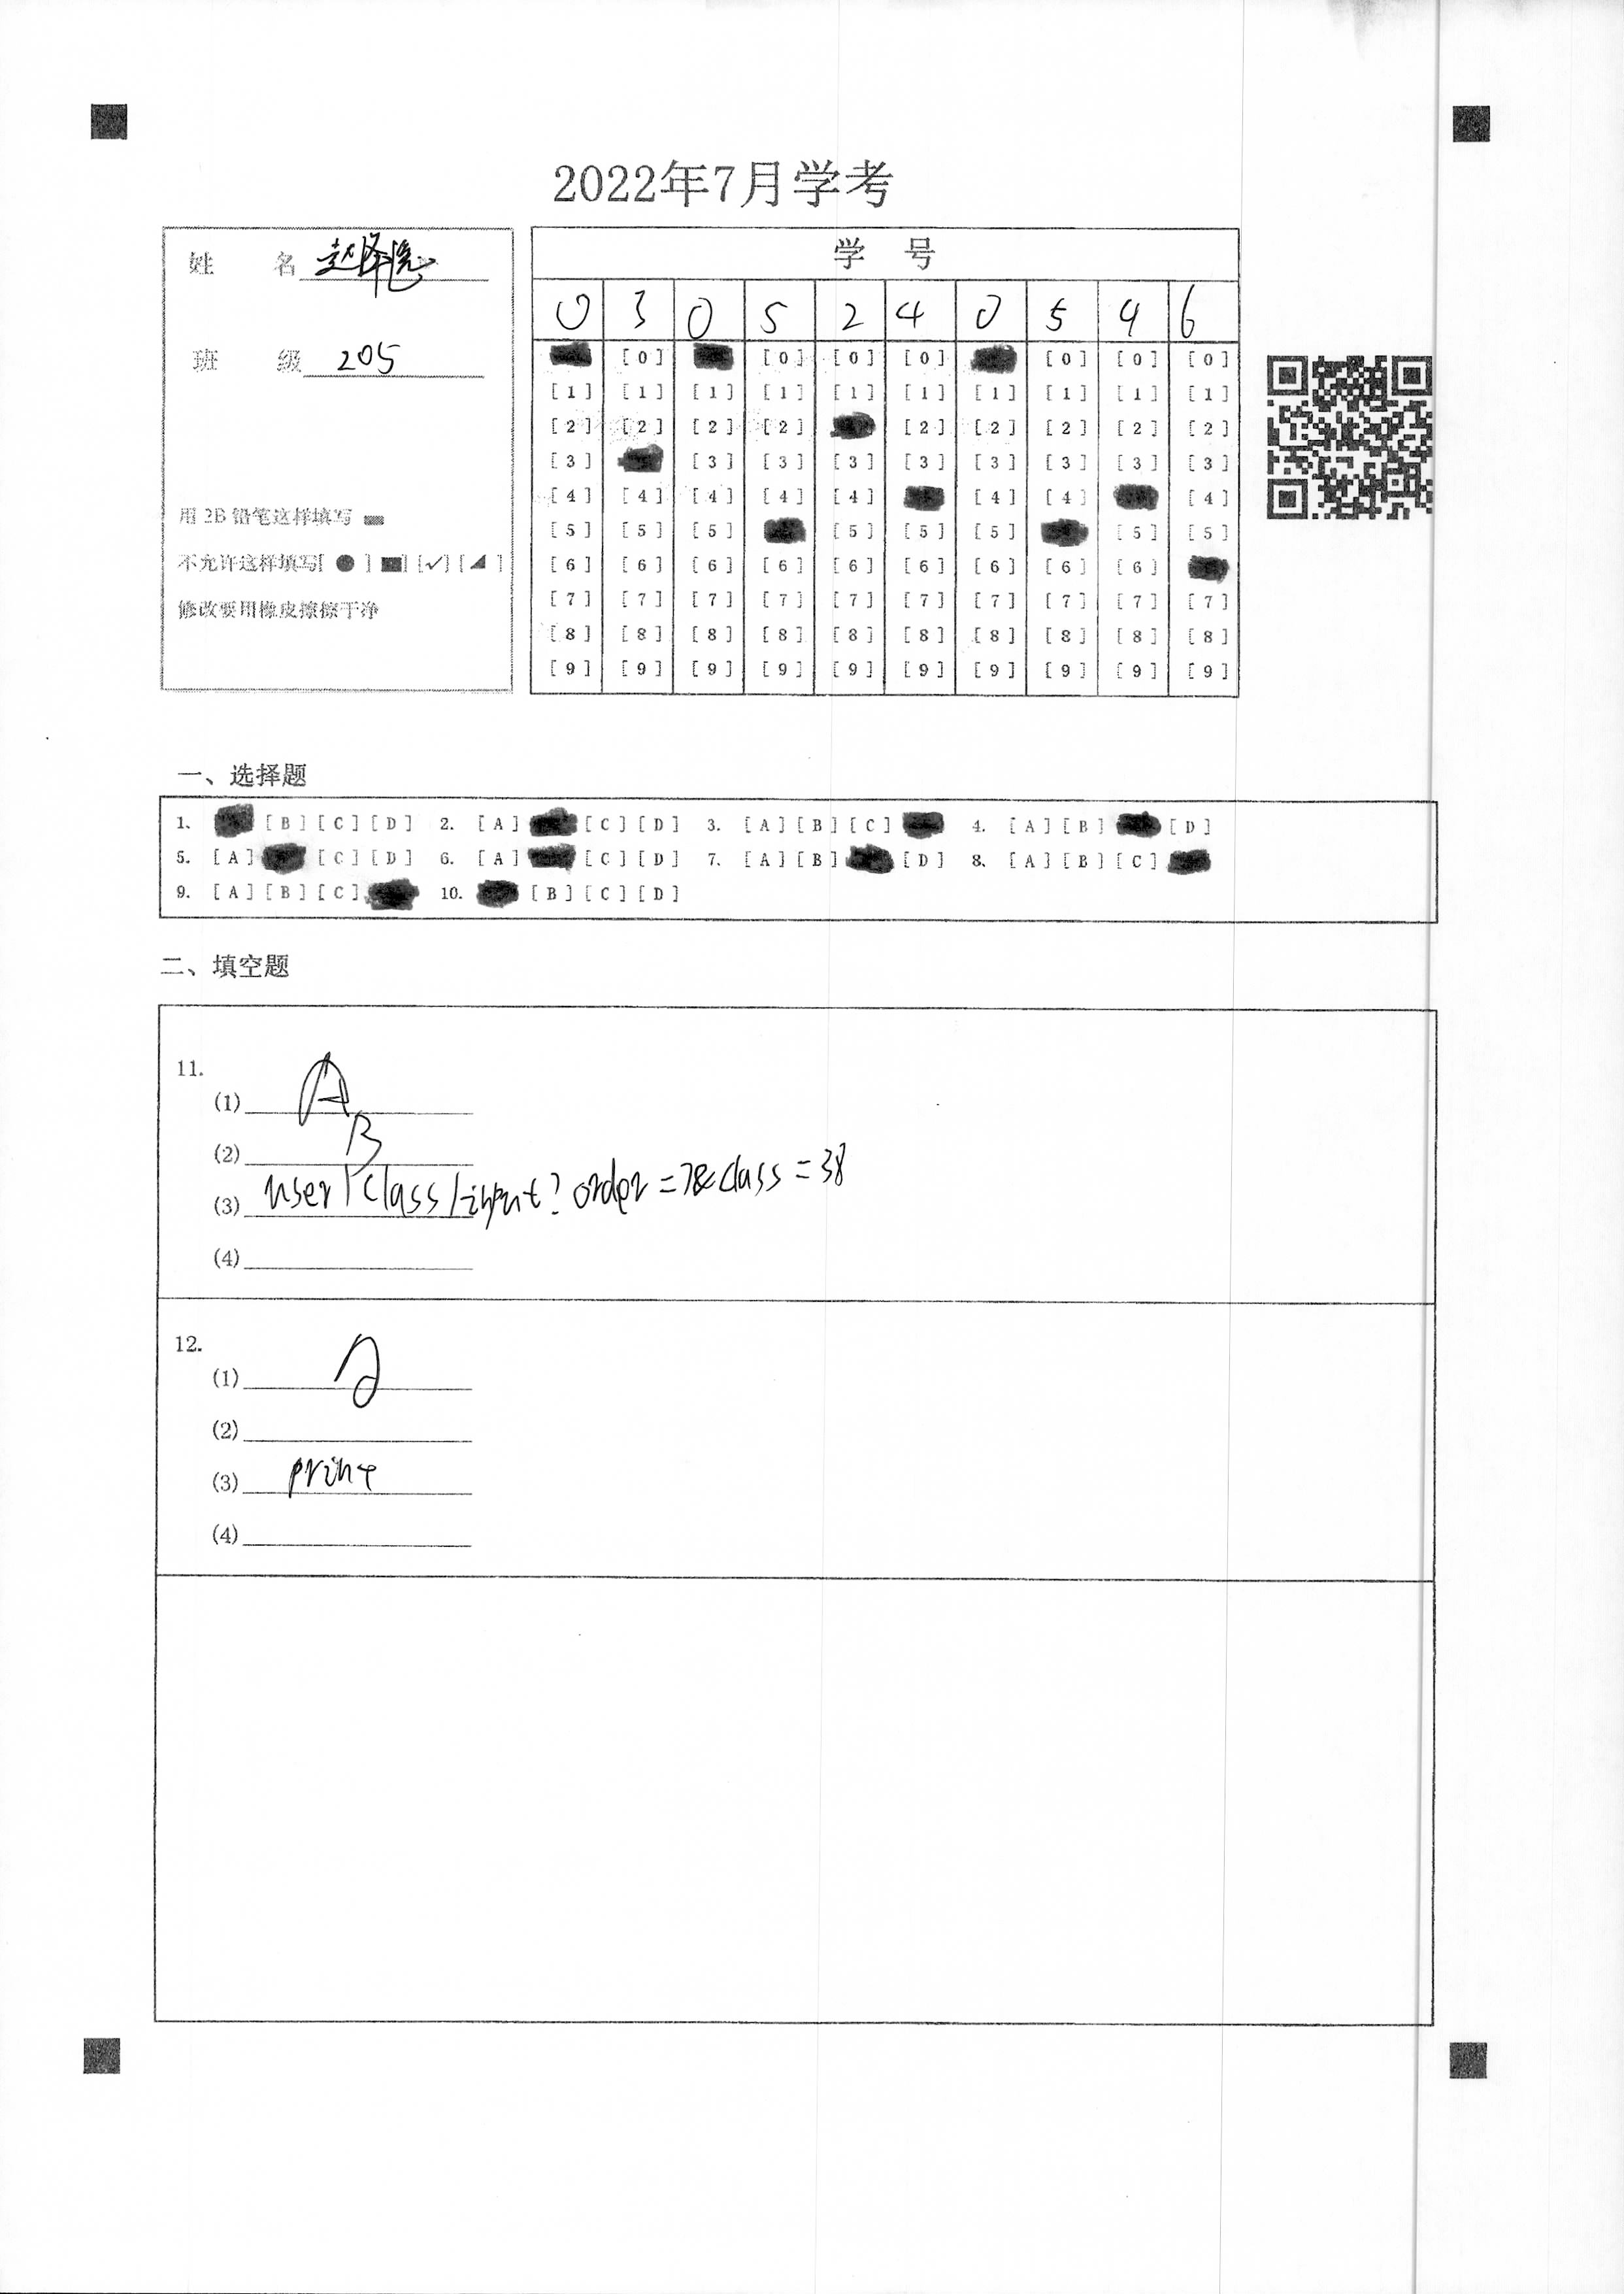 2022年7月学考
姓 名 赵泽
班 级 205
用2B铅笔这样填写
不允许这样填写[●] [■] [✓] [◢]
修改要用橡皮擦擦干净
学 号
0 3 0 5 2 4 0 5 4 6
[0] [0] [0] [0] [0] [0] [0]
[1] [1] [1] [1] [1] [1] [1] [1] [1] [1]
[2] [2] [2] [2] [2] [2] [2] [2] [2]
[3] [3] [3] [3] [3] [3] [3] [3] [3]
[4] [4] [4] [4] [4] [4] [4] [4]
[5] [5] [5] [5] [5] [5] [5] [5]
[6] [6] [6] [6] [6] [6] [6] [6] [6]
[7] [7] [7] [7] [7] [7] [7] [7] [7] [7]
[8] [8] [8] [8] [8] [8] [8] [8] [8] [8]
[9] [9] [9] [9] [9] [9] [9] [9] [9] [9]
一、选择题
1. [B] [C] [D] 2. [A] [C] [D] 3. [A] [B] [C] 4. [A] [B] [D]
5. [A] [C] [D] 6. [A] [C] [D] 7. [A] [B] [D] 8. [A] [B] [C]
9. [A] [B] [C] 10. [B] [C] [D]
二、填空题
11.
(1) A
(2) B
(3) user/class/input?order=7&class=38
(4)
12.
(1)
(2)
(3) print
(4)